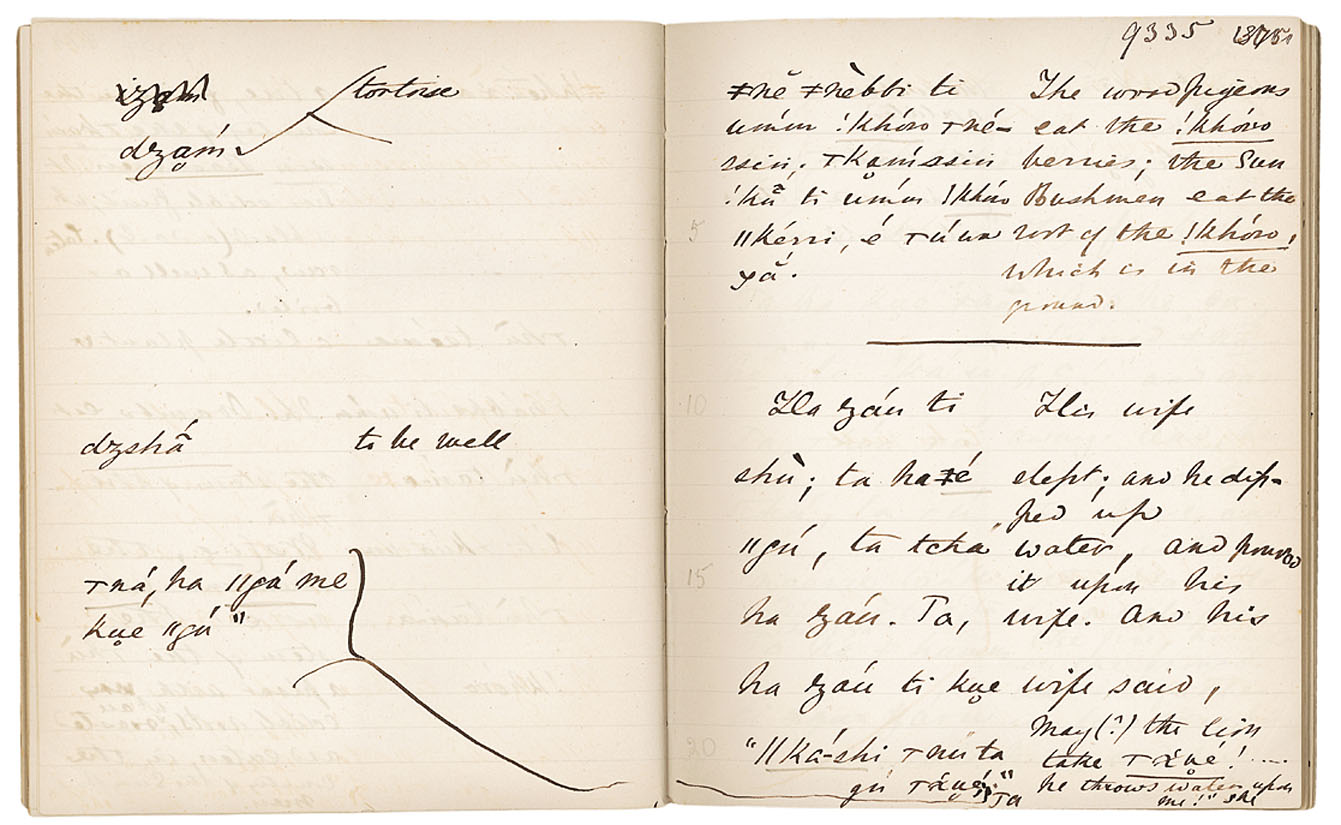 tortoise
dzạḿ
dzshá̃
to be well
ꞇná, ha ǁgú me
kụe ǁgú"
9335
ǂnĕ ǂnèbbi ti
The wood pigeons
úmm !khóro ꞇné-
eat the !khóro
ssin; ꞇkạḿssin
berries; the Sun
!kũ ti úmm !khóro
Bushmen eat the
5
ǁkérri, é ꞇúwa
root of the !khóro,
yă.
which is in the
ground.
10
Ha záu ti
His wife
shù; ta ha ꞇé
slept; and he dip-
ped up
ǁgú, ta tcha
water, and poured
15
it upon his
ha záu. Ta,
wife. And his
ha záu ti kụe
wife said,
"ǁká-shi ꞇnu ta
May (?) the lion
20
take
gú
he throws water upon
Ta
me!" she